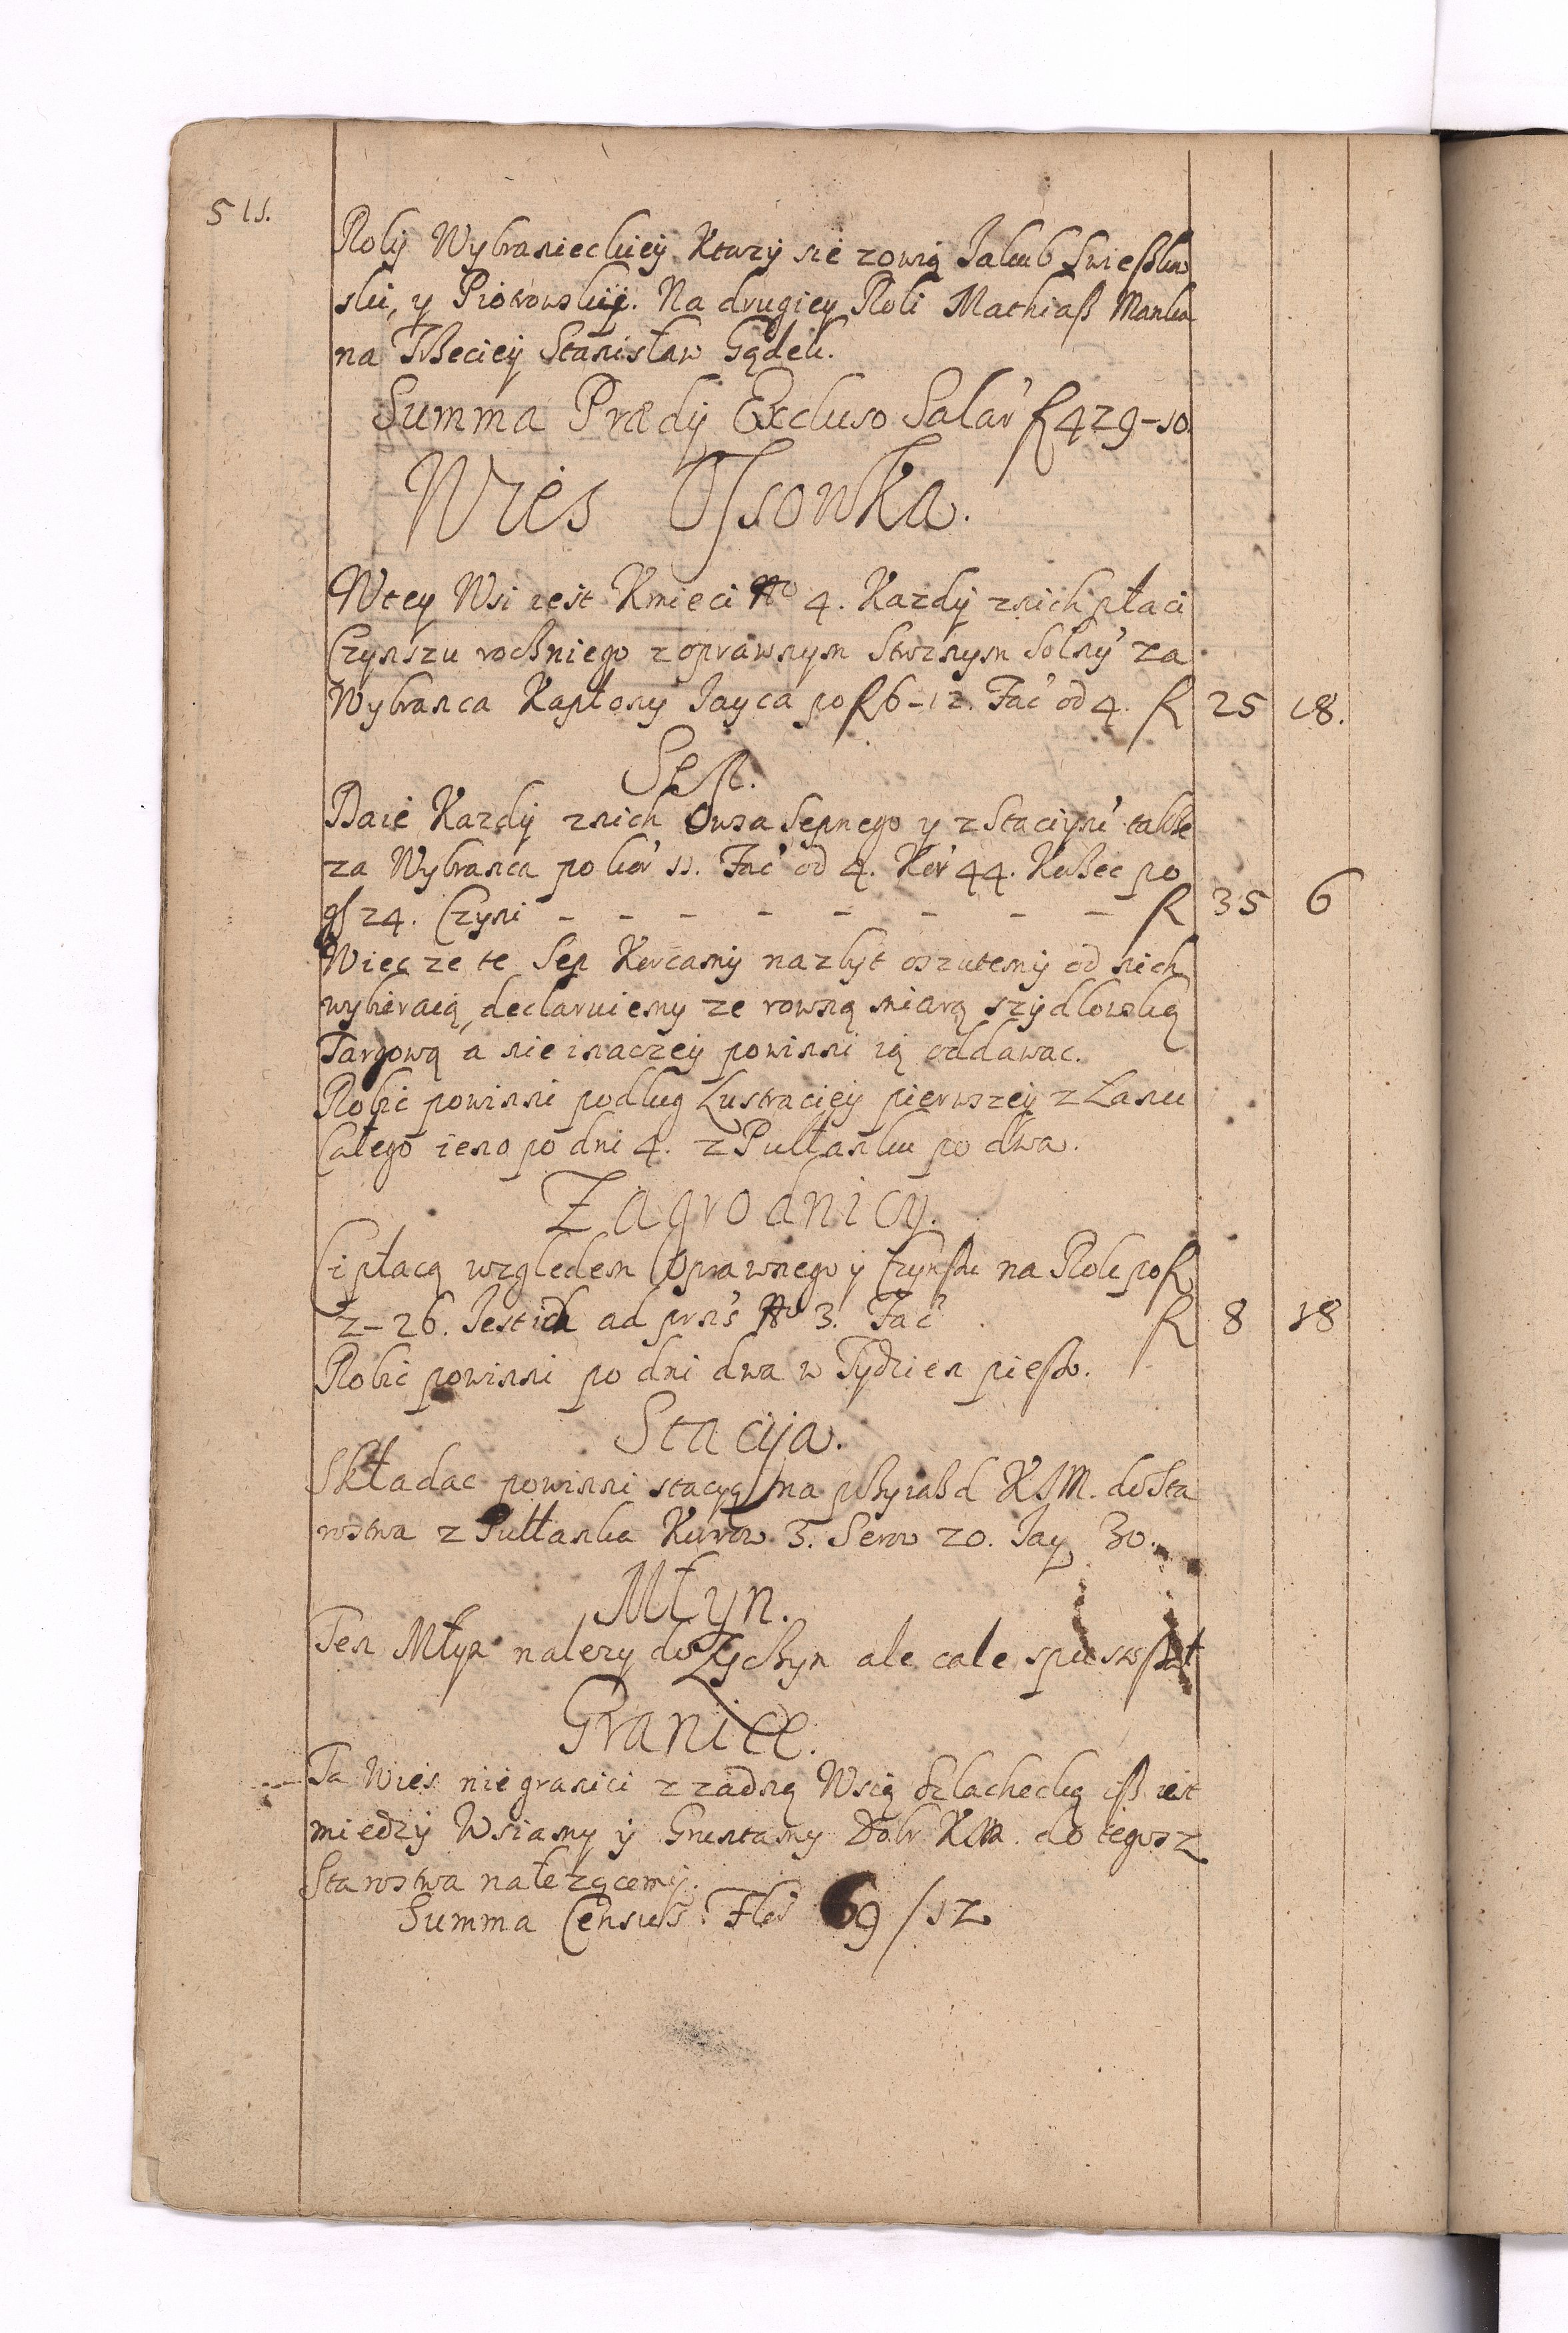 511.
Roly Wybranieckiey Ktorzy sie zowią Jakub Swieszkow
ski, y Piotrowskij. Na drugiey Roli Mathiaß Manka
na Trzeciey Stanisław Gądek.
Summa Prædij Excluso Salar' fl 429-10.
Wies Ossowka.
Wtey Wsi iest Kmieci No 4. Kazdy znich płaci
Czynszu rocznego z oprawnym Strznym Solny' za
Wybranca Kapłony Jayca po fl 6-12. Fac' od 4. fl 25 18.
Sep.
Daie Kazdy znich Owsa Sepnego y z Stacyni' takze
za Wybranca po kor' 11. Fac' od 4. Kor' 44. Korzec po
gß 24. Czyni - - - - - - - - fl 35 6
Wiec ze te Sep Korcamy nazbyt oszutemy od nich
wybieraią, declaruiemy ze rowną miarą szydlowską
Targową a nie inaczey powinni ią oddawac.
Robic powinni podlug Lustraciey pierwszey z Lanu
Całego ieno po dni 4. z Pułłanku po dwa.
Zagrodnicy.
Ci płacą względem Oprawnego y Czynszu na Rok po fl
2-26. Jest ich ad prns' No 3. Fac' . fl 8 18
Robic powinni po dni dwa w Tydzien pieszo.
Stacija.
Składac powinni stacyą na przyiazd KJM. do Sta
rostwa z Pułłanka Kurow 3. Serow 20. Jay 30.
Młyn.
Ten Młyn nalezy do Łyczyn ale cale spustoszał
Granice.
Ta Wies niegranici z zadną Wsią Szlachecką iß iest
miedzy Wsiamy y Gruntamy Dobr KJM. do tegosz
Starostwa należącemy.
Summa Census Flor' 69/12